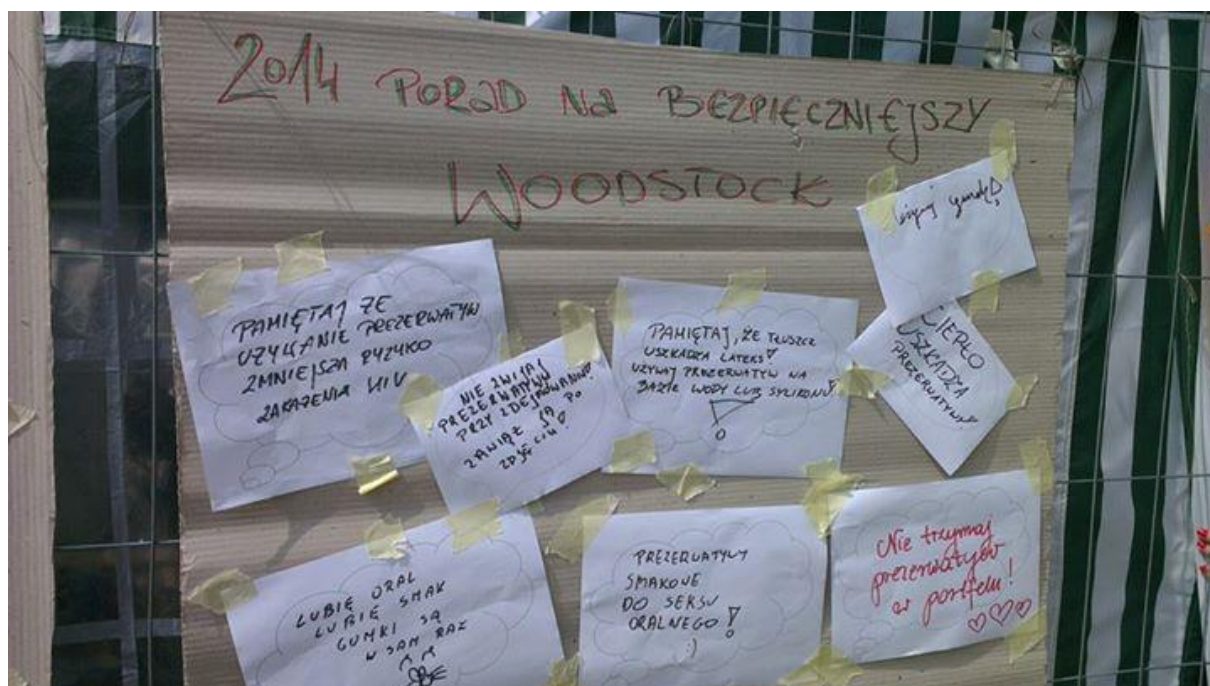 2014 PORAD NA BEZPIĘCZNIEJSZY
WOODSTOCK
PAMIĘTAJ ŻE
UŻYWANIE PREZERWATYW
ZMNIEJSZA RYZYKO
ZAKAŻENIA HIV
NIE ZWIJAJ
PREZERWATYWY
PRZY ZDEJMOWANIU!
ZAWIĄŻ JĄ PO
ZDJĘCIU!
PAMIĘTAJ, ŻE TŁUSZCZ
USZKADZA LATEKS!
UŻYWAJ PREZERWATYW NA
BAZIE WODY LUB SYLIKONU!
CIEPŁO
USZKADZA
PREZERWATYWY!
LUBIĘ ORAL
LUBIĘ SMAK
GUMKI SĄ
W SAM RAZ
PREZERWATYWY
SMAKOWE
DO SEKSU
ORALNEGO!
:)
Nie trzymaj
prezerwatyw
w portfelu!